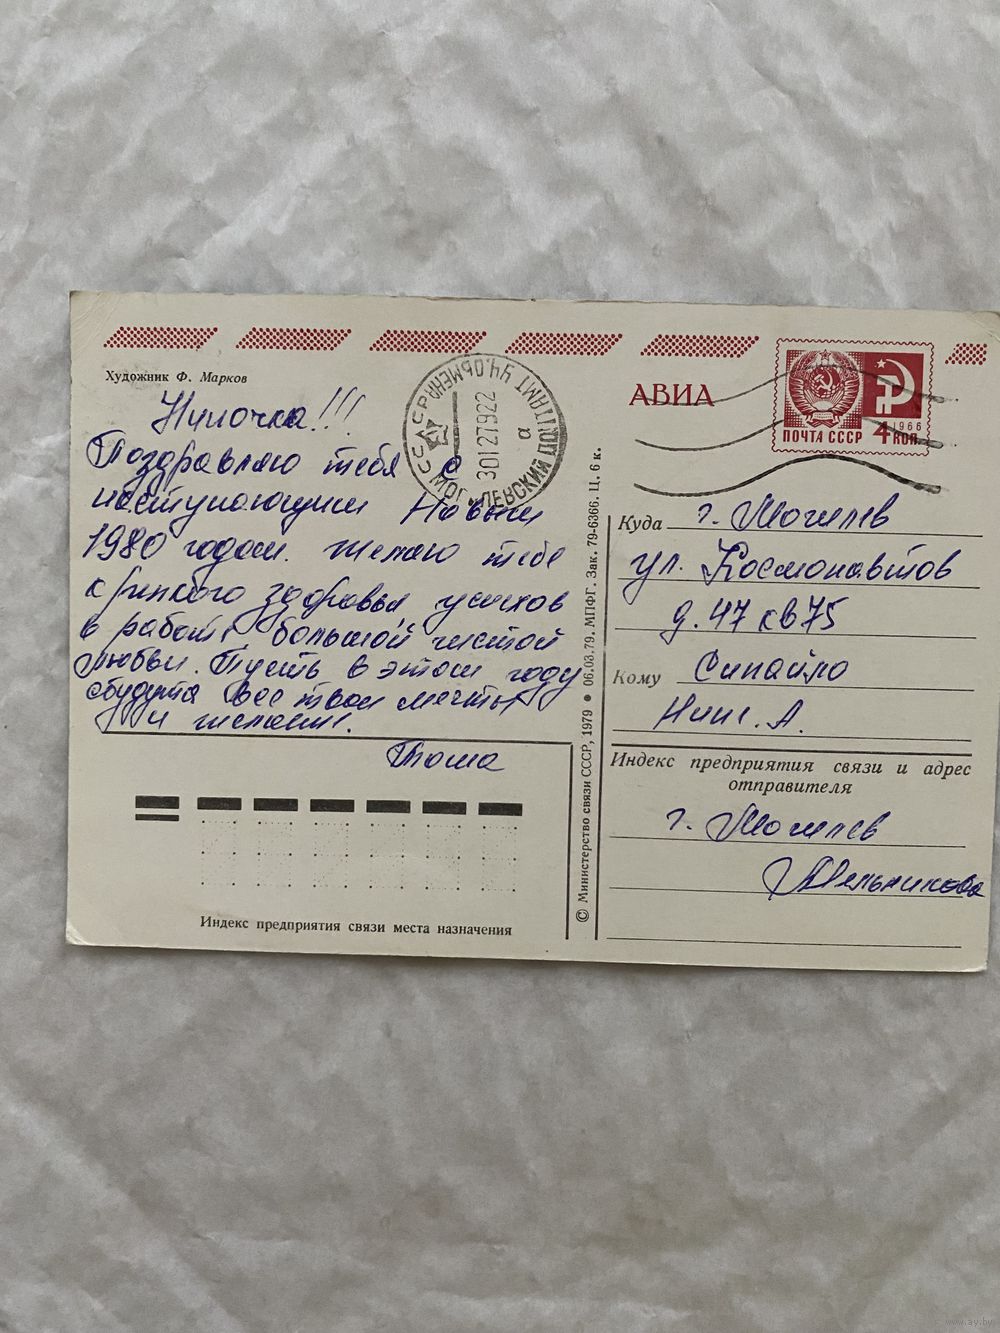 Художник Ф. Марков
Ниночка!!!
Поздравляю тебя с
наступающим Новым
1980 годом. Желаю тебе
крепкого здоровья успехов
в работе большой чистой
любви. Пусть в этом году
сбудутся все твои мечты
и желания.
Тома
Индекс предприятия связи места назначения
© Министерство связи СССР, 1979 ● 06.03.79. МПФГ. Зак. 79-6366. Ц. 6 к.
МОГИЛЕВСКИЙ ПОЧТАМТ УЧ. ОБМЕНА
301279 22
а
АВИА
ПОЧТА СССР
4 КОП.
1966
Куда г. Могилев
ул. Космонавтов
д. 47 кв 75
Кому Синайло
Нине. А.
Индекс предприятия связи и адрес
отправителя
г. Могилев
Мельникова
www.ay.by